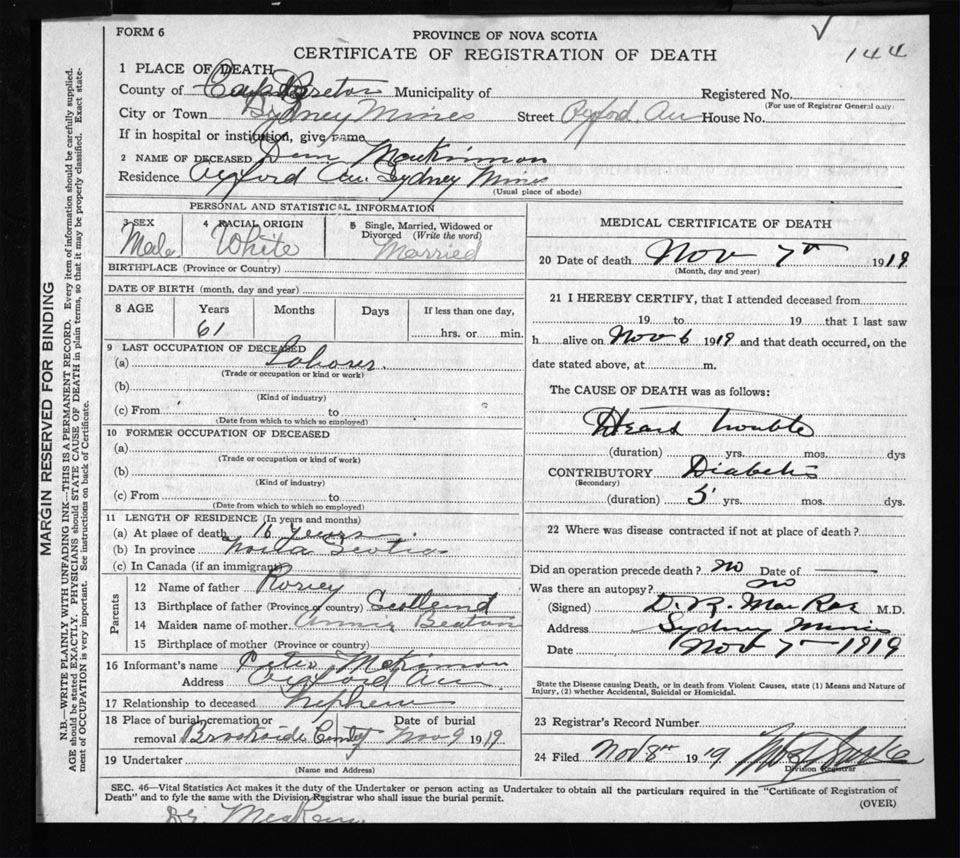 FORM 6
PROVINCE OF NOVA SCOTIA
144
CERTIFICATE OF REGISTRATION OF DEATH
1 PLACE OF DEATH
County of Cape Breton Municipality of Registered No.
(For use of Registrar General only)
City or Town Sydney Mines Street Oxford Av House No.
If in hospital or institution, give name
2 NAME OF DECEASED MacKinnon
Residence Oxford Av. Sydney Mines
(Usual place of abode)
PERSONAL AND STATISTICAL INFORMATION
3 SEX Male
4 RACIAL ORIGIN White
5 Single, Married, Widowed or Divorced (Write the word) Married
BIRTHPLACE (Province or Country)
DATE OF BIRTH (month, day and year)
8 AGE Years 61 Months Days If less than one day, hrs. or min.
9 LAST OCCUPATION OF DECEASED
(a) Laborer.
(Trade or occupation or kind or work)
(b)
(Kind of industry)
(c) From to
(Date from which to which so employed)
10 FORMER OCCUPATION OF DECEASED
(a)
(Trade or occupation or kind of work)
(b)
(Kind of industry)
(c) From to
(Date from which to which so employed)
11 LENGTH OF RESIDENCE (In years and months)
(a) At place of death 16 years
(b) In province Nova Scotia
(c) In Canada (if an immigrant)
Parents
12 Name of father Roriey
13 Birthplace of father (Province or country) Scotland
14 Maiden name of mother Annie Beaton
15 Birthplace of mother (Province or country)
16 Informant's name Peter McKinnon
Address Oxford Av
17 Relationship to deceased Nephew
18 Place of burial, cremation or removal Brookside Date of burial Nov 9 1919
19 Undertaker
(Name and Address)
MEDICAL CERTIFICATE OF DEATH
20 Date of death Nov 7th 1919
(Month, day and year)
21 I HEREBY CERTIFY, that I attended deceased from
19 to 19 that I last saw
h alive on Nov 6 1919 and that death occurred, on the
date stated above, at m.
The CAUSE OF DEATH was as follows:
Heart Trouble
(duration) yrs. mos. dys
CONTRIBUTORY Diabetis
(Secondary)
(duration) 5 yrs. mos. dys.
22 Where was disease contracted if not at place of death?
Did an operation precede death? no Date of
Was there an autopsy? no
(Signed) D. R. MacRae M.D.
Address Sydney Mines
Date Nov 7th 1919
State the Disease causing Death, or in death from Violent Causes, state (1) Means and Nature of
Injury, (2) whether Accidental, Suicidal or Homicidal.
23 Registrar's Record Number
24 Filed Nov 8th 1919
Division Registrar
SEC. 46—Vital Statistics Act makes it the duty of the Undertaker or person acting as Undertaker to obtain all the particulars required in the "Certificate of Registration of
Death" and to fyle the same with the Division Registrar who shall issue the burial permit.
(OVER)
MARGIN RESERVED FOR BINDING
N.B.—WRITE PLAINLY WITH UNFADING INK—THIS IS A PERMANENT RECORD. Every item of information should be carefully supplied.
AGE should be stated EXACTLY. PHYSICIANS should STATE CAUSE OF DEATH in plain terms, so that it may be properly classified. Exact state-
ment of OCCUPATION is very important. See instructions on back of Certificate.